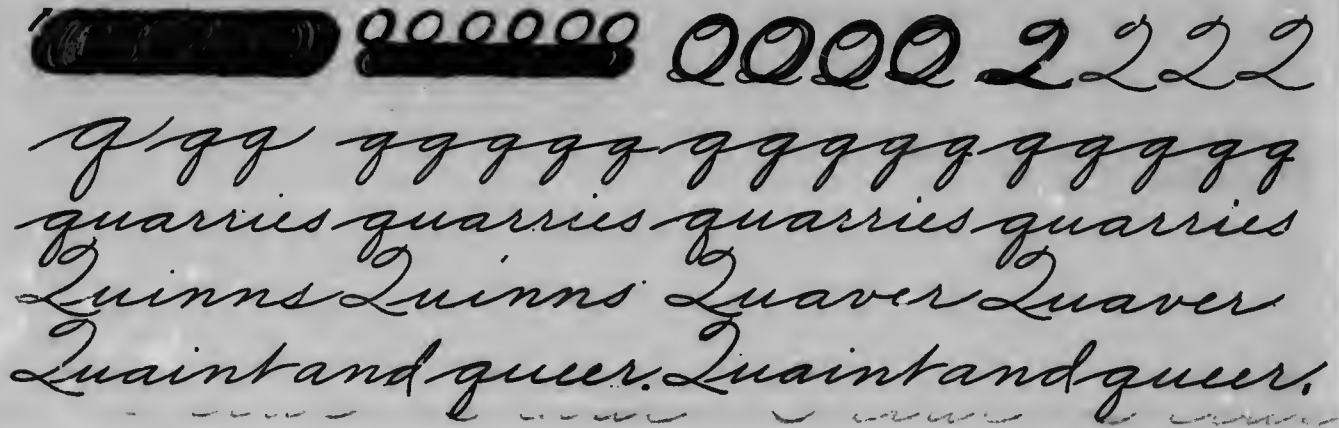 Q Q Q Q Q Q Q Q
q q q q q q q q q q q q q q q q q q
quarries quarries quarries quarries
Quinns Quinns Quaver Quaver
Quaint and queer. Quaint and queer.